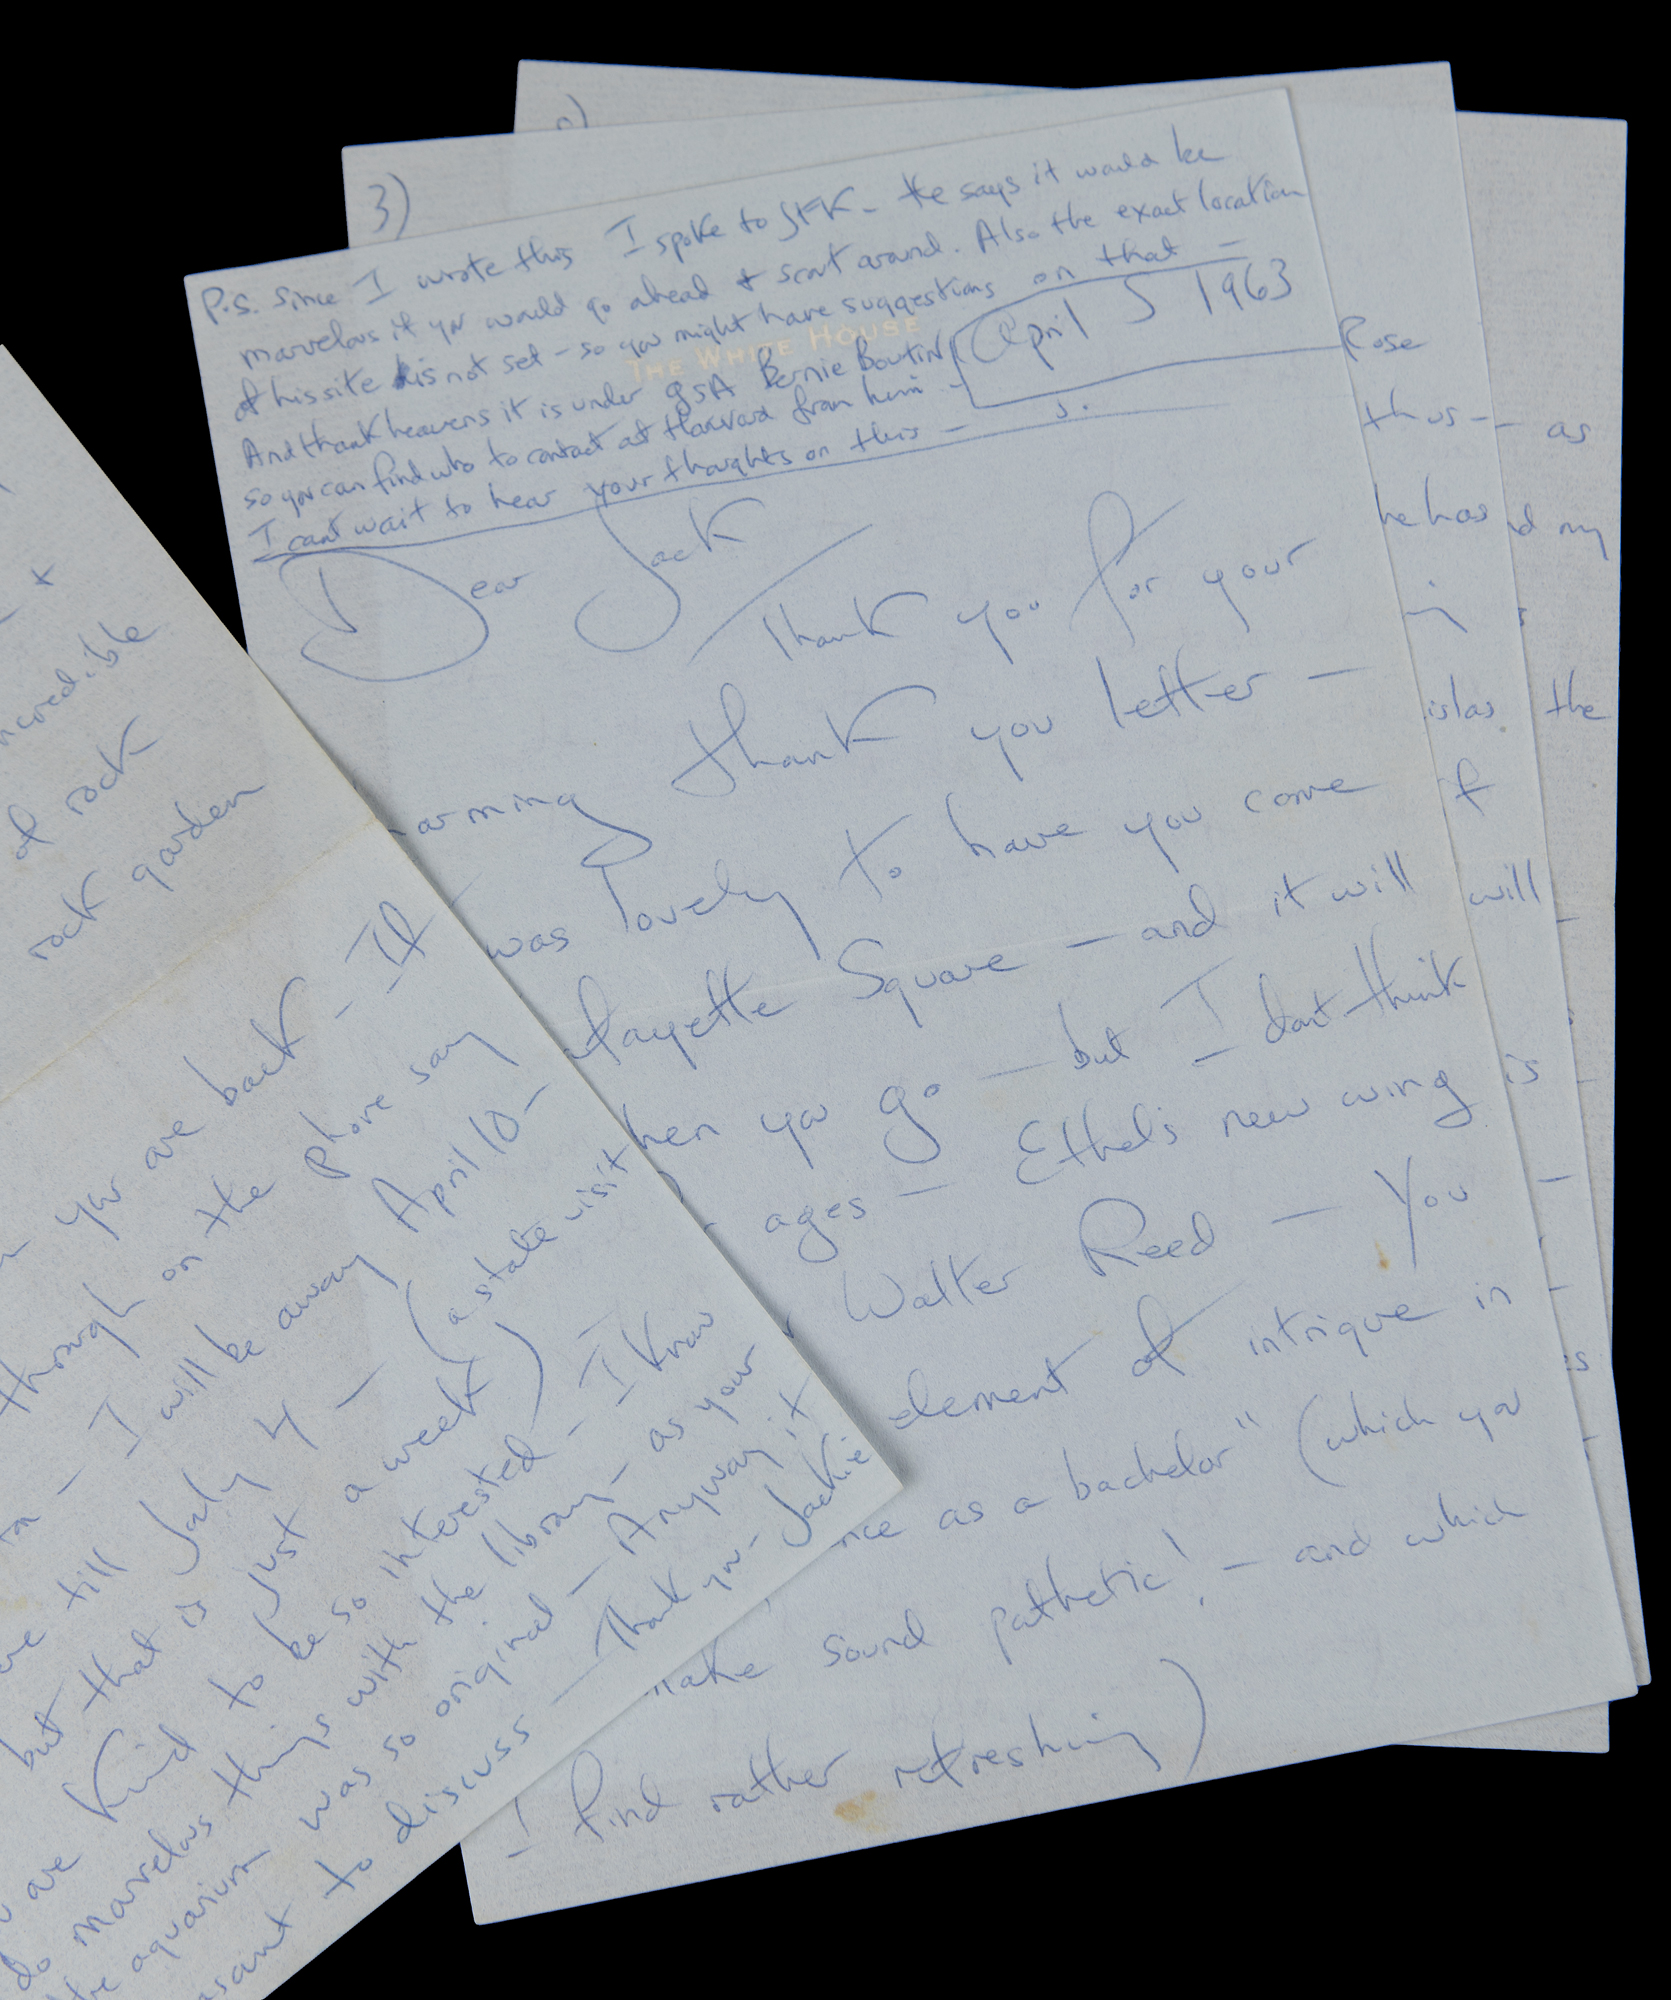 3)
P.S. Since I wrote this I spoke to JFK - He says it would be
marvelous if you would go ahead & scout around. Also the exact location
of his site is not set - so you might have suggestions on that -
And thank heavens it is under GSA Bernie Boutin
so you can find who to contact at Harvard from him -
I cant wait to hear your thoughts on this -
THE WHITE HOUSE
April 5 1963
Dear Jack
Thank you for your
thank you letter -
was lovely to have you come
Square - and it will
you go - but I dont think
ages - Ethel's new wing is
Walter Reed - You
element of intrigue in
as a bachelor" (which you
sound pathetic! - and which
I find rather refreshing)
Rose
thus - as
he has my
the
if
will
of rock
rock garden
you are back - If
through on the phone say
- I will be away April 10 -
till July 4 - (a state visit
but that is just a week)
are kind to be so interested - I know
do marvelous things with the library - as your
the aquarium was so original - Anyway it
to discuss - Thank you - Jackie